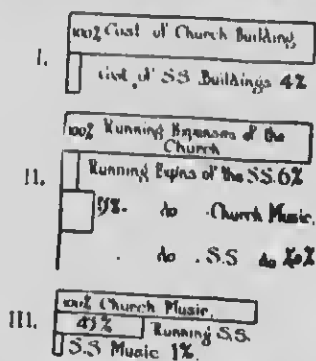 100% Cost of Church Building
I.
Cost of S.S. Buildings 4%
100% Running Expenses of the Church
II.
Running Expns of the SS. 6%
15%. do Church Music.
. do . S.S do
100% Church Music.
III.
45% Running S.S.
S.S Music 1%.